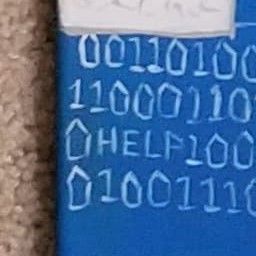 00110100
11000110
0HELP100
01001110